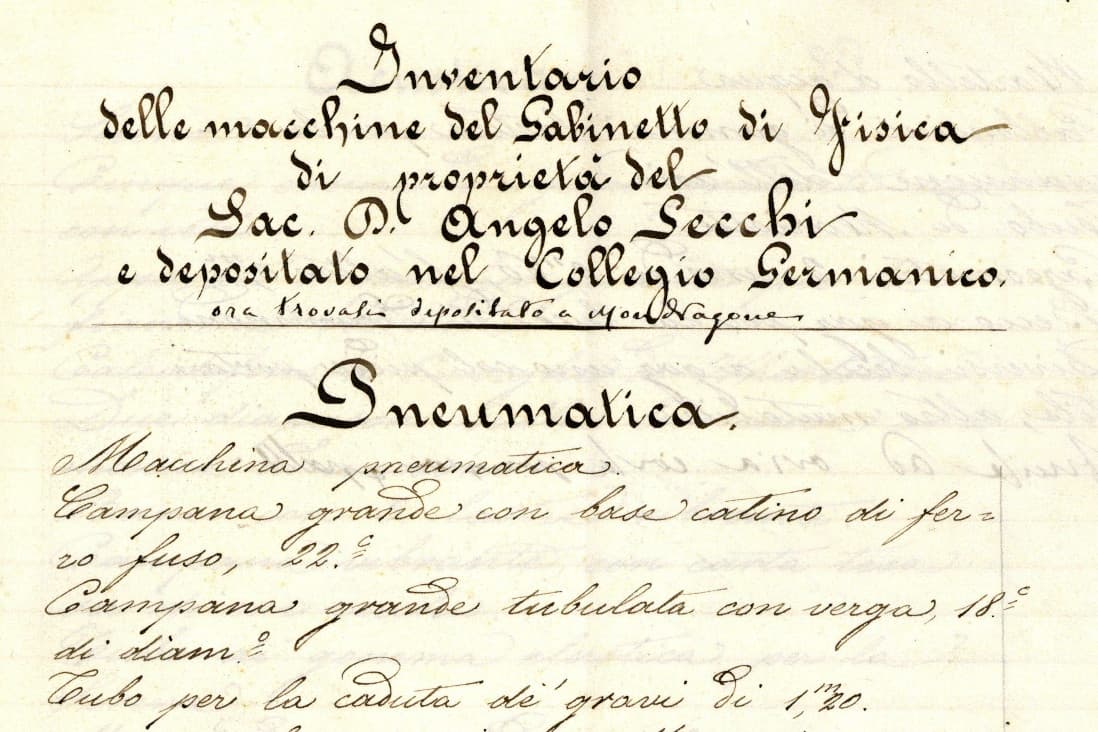 Inventario
delle macchine del Gabinetto di Fisica
di proprietà del
Sac. D. Angelo Secchi
e depositato nel Collegio Germanico.
ora trovasi depositato a Mondragone
Pneumatica.
Macchina pneumatica.
Campana grande con base catino di fer=
ro fuso, 22.c
Campana grande tubulata con verga, 18.c
di diam.o
Tubo per la caduta de' gravi di 1,m20.